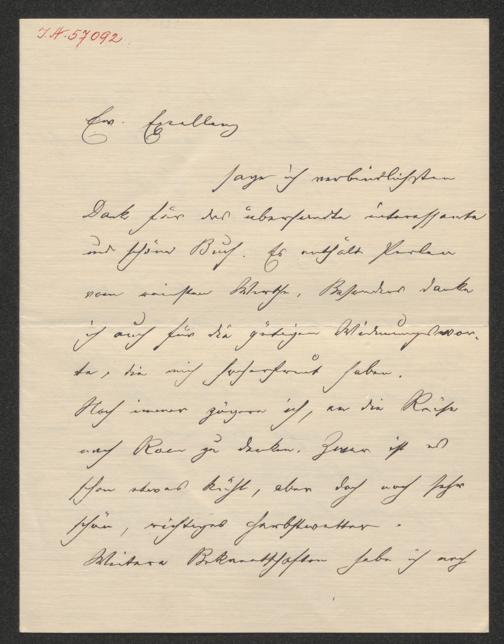 I.N. 57092
Ew. Exzellenz
sage ich verbindlichsten
Dank für das übersandte interessante
und schöne Buch. Es enthält Perlen
vom reinsten Werthe. Besonders danke
ich auch für die gütigen Widmungswor-
te, die mich hocherfreut haben.
Noch immer zögere ich, an die Reise
nach Rom zu denken. Zwar ist es
schon etwas kühl, aber doch noch sehr
schön, richtiges Herbstwetter.
Weitere Bekanntschaften habe ich noch